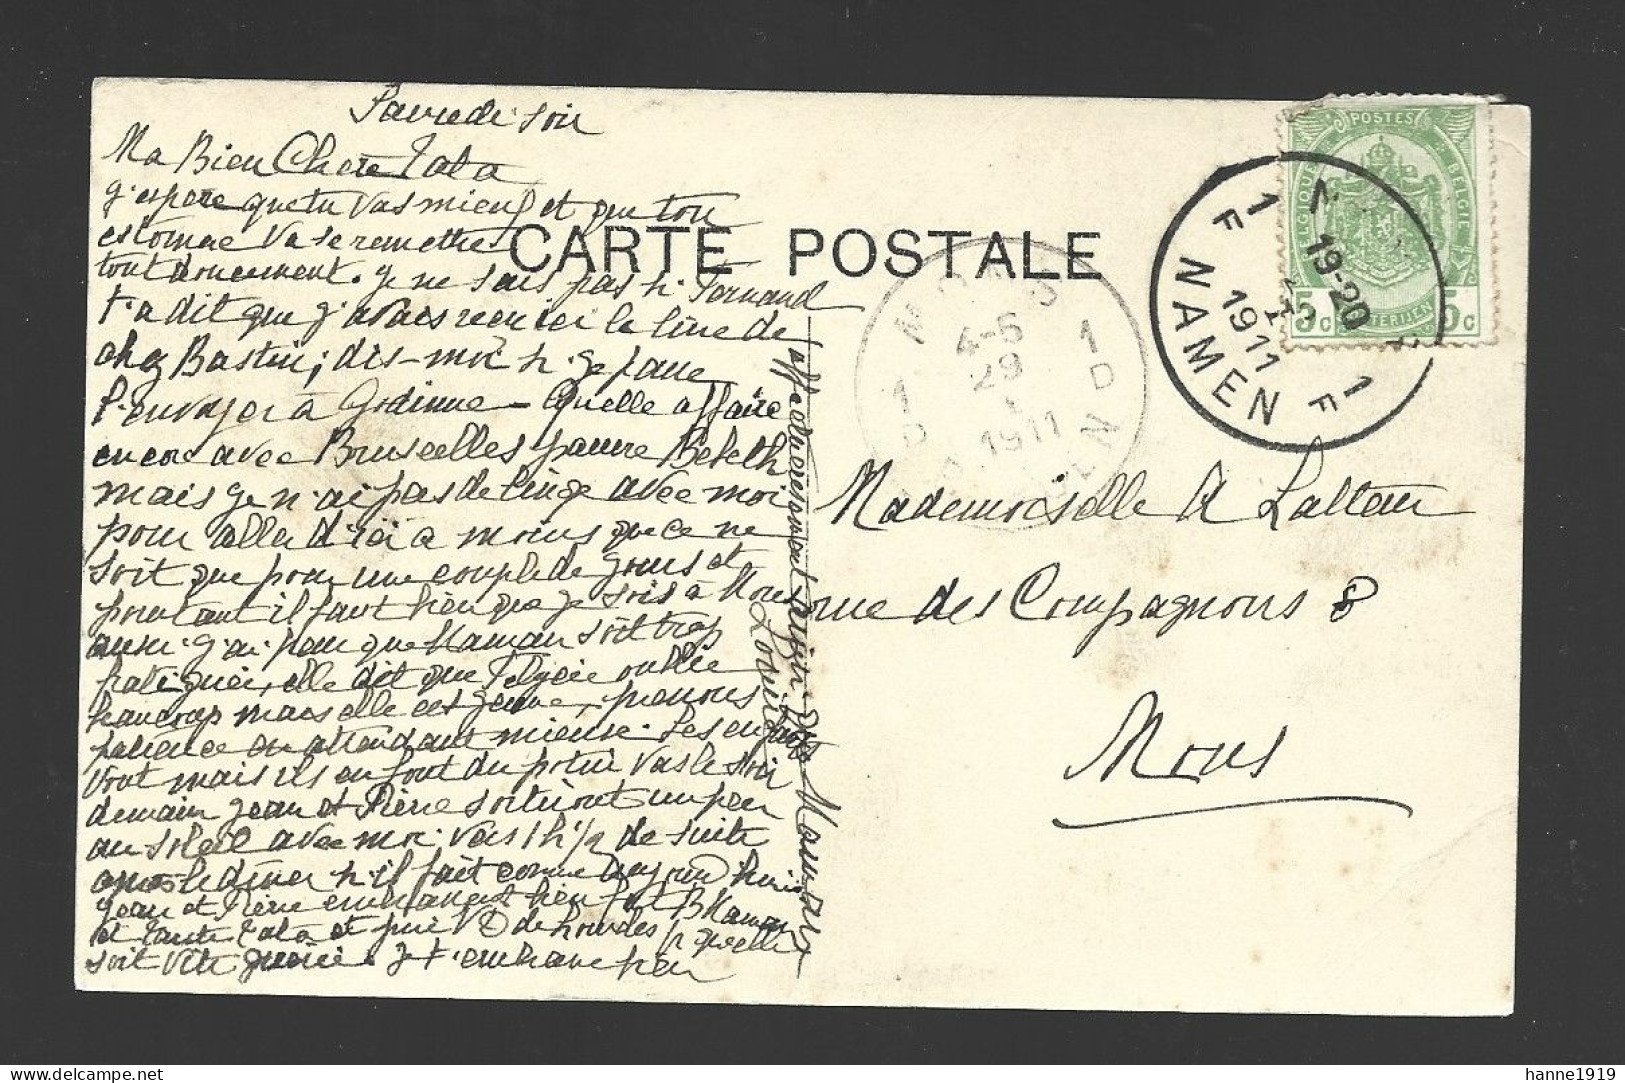 Samedi soir
Ma Bien Chère Tata
J'espère que tu vas mieux et que ton
estomac va se remettre
tout doucement. Je ne sais pas si Fernand
t'a dit que j'avais reçu ici le livre de
chez Bastin; dis-moi si je faux
l'envoyer à Godinne - Quelle affaire
encore avec Bruxelles pauvre Bebeth
mais je n'ai pas de linge avec moi
pour aller d'ici à moins que ce ne
soit que pour une couple de jours et
pourtant il faut bien que je sois à Mons
aussi j'ai peur que Maman soit trop
fatiguée, elle dit que oublie
beaucoup mais elle est jeune, prenons
patience en attendant mieux. Les enfants
vont mais ils en font du potin vas le soir
demain Jean et Pierre sortiront un peu
au soleil avec moi vers 1 h 1/2 de suite
après le diner s'il fait comme aujourd'hui
Jean et Pierre embrassent bien fort B Maman
et Tante Tata et prie N D de Lourdes pr qu'elle
soit vite guérie. Je t'embrasse
affectueusement ainsi que Maman
Louise
CARTE POSTALE
POSTES
BELGIQUE
BELGIE
5c
5c
1 F
19-20
1911
NAMEN
1 F
MONS
4-5
29
1911
BERGEN
1 D
1 D
Mademoiselle A Lalteur
rue des Compagnons 8
Mons
hanne1919 / Delcampe.net